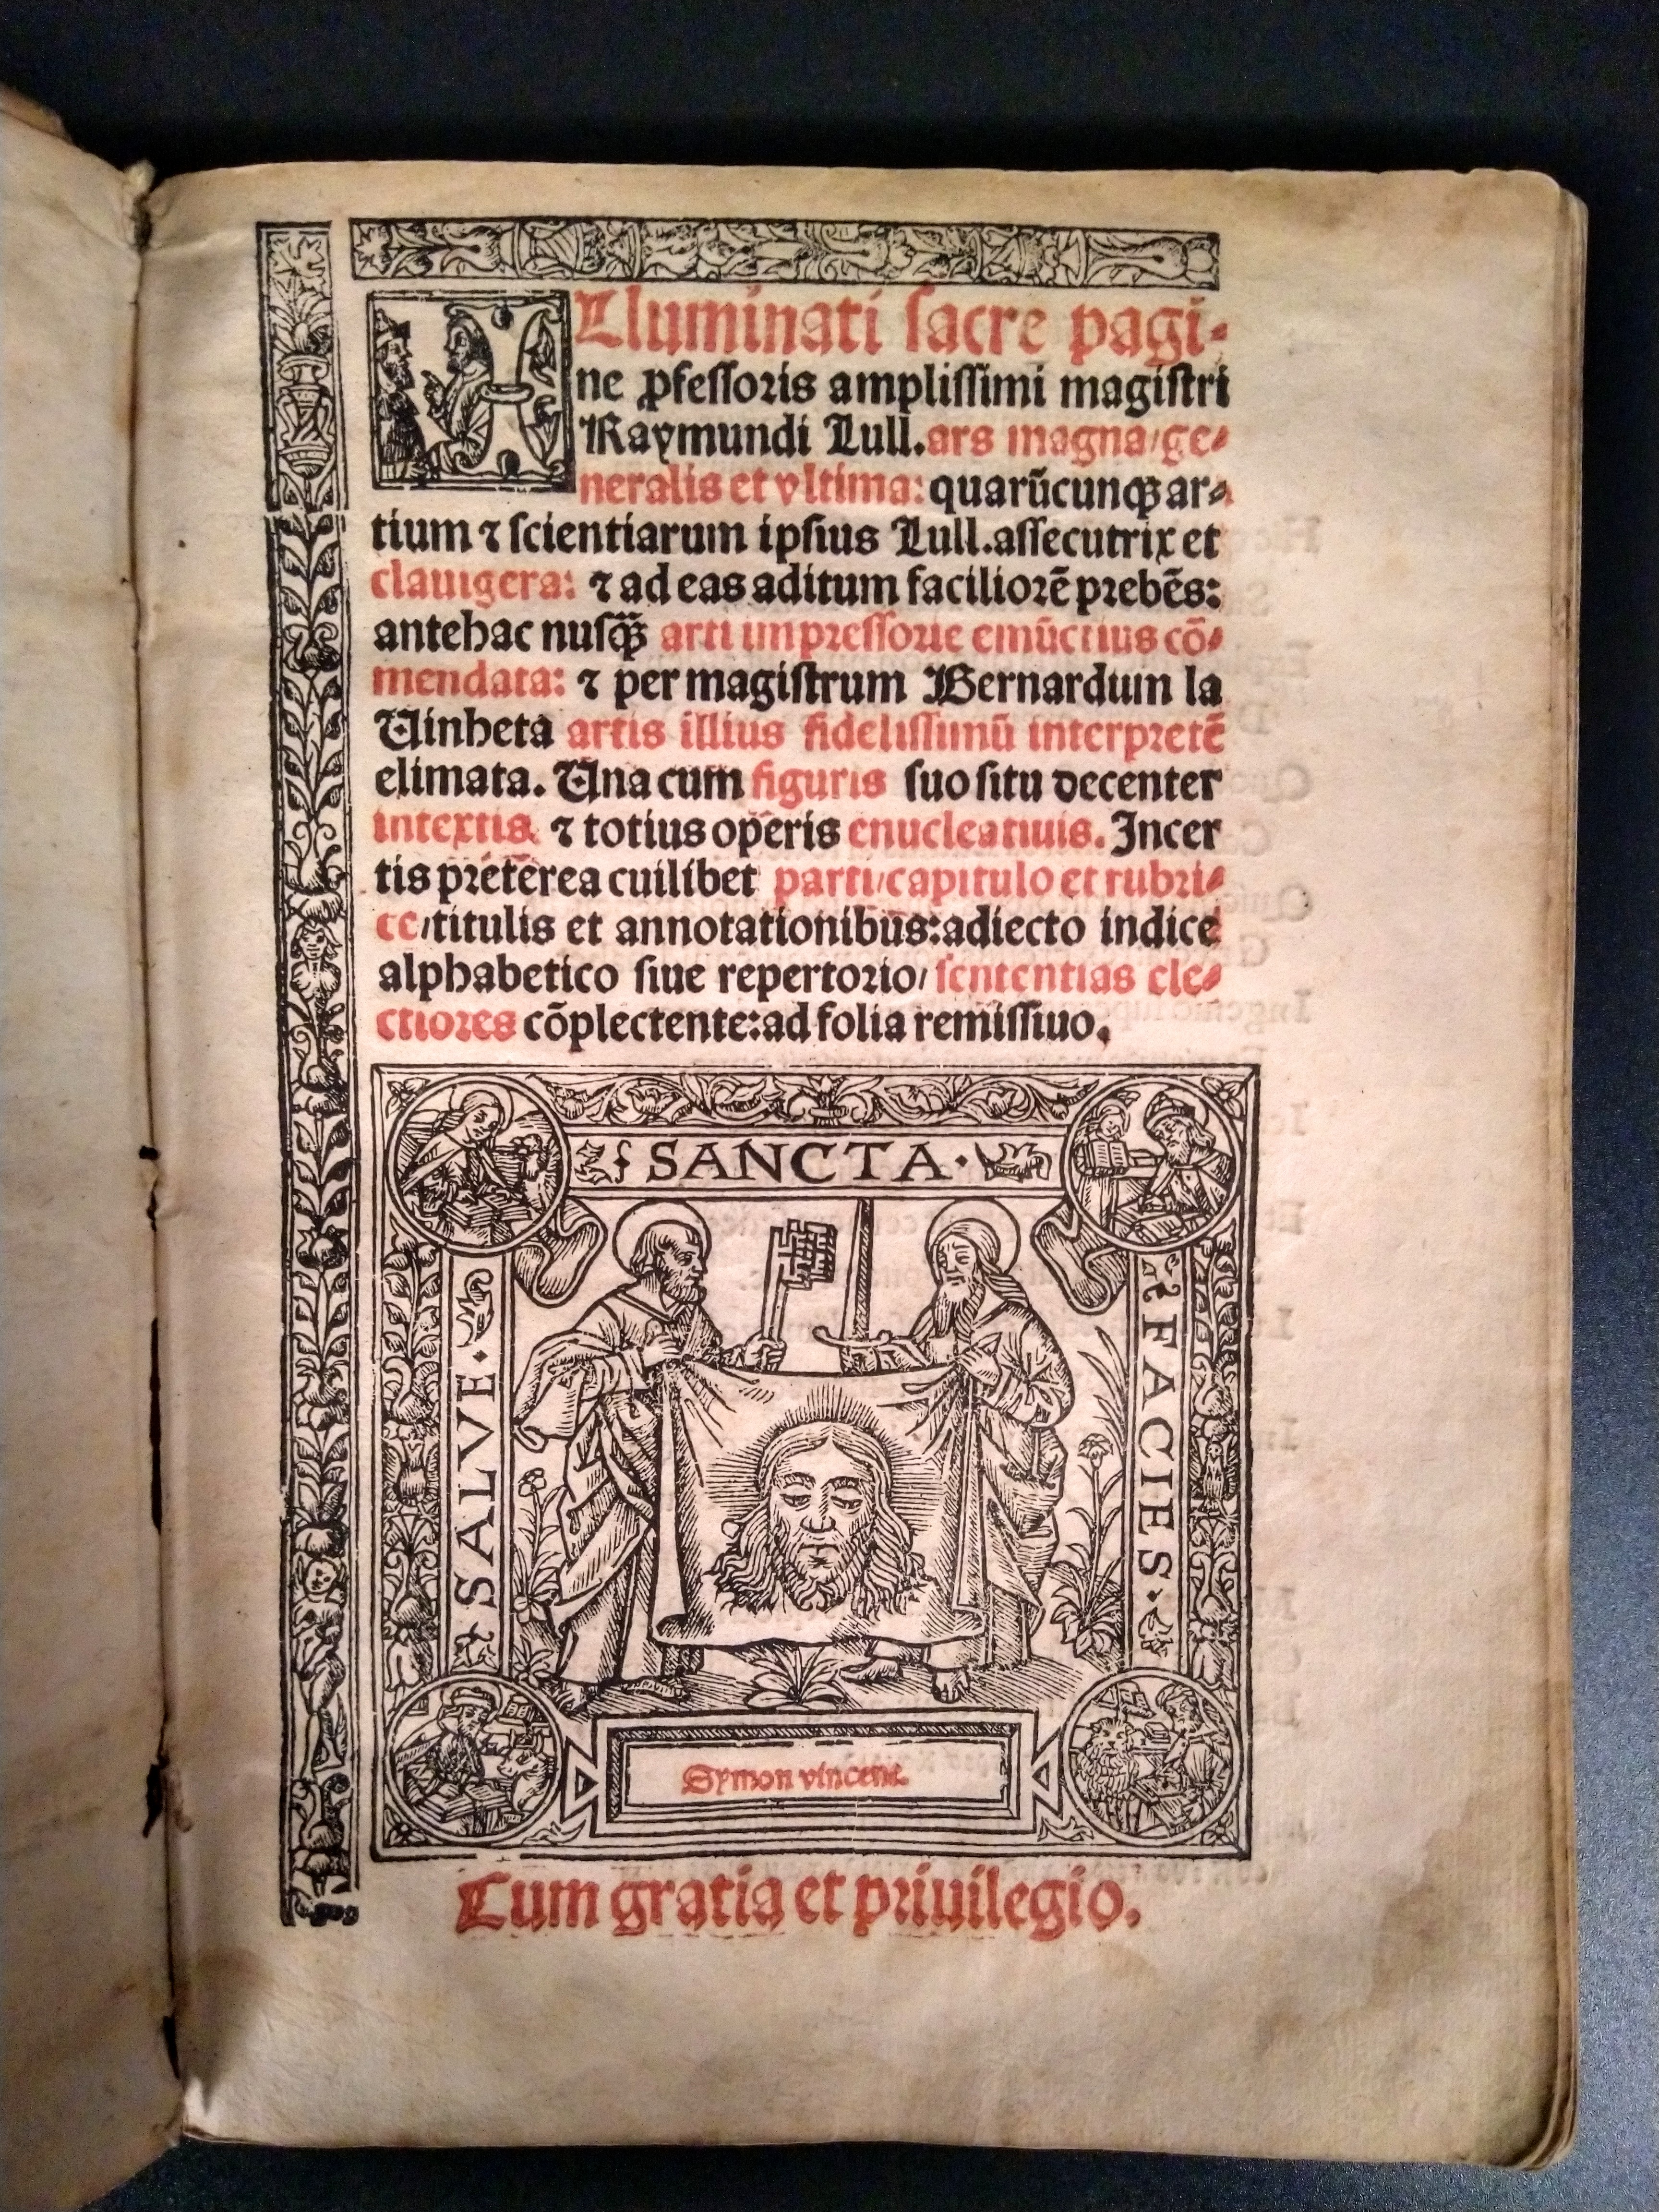 Illuminati sacre pagi-
ne ꝓfessoris amplissimi magistri
Raymundi Lull. ars magna/ge-
neralis et vltima: quarūcunqꝫ ar-
tium ⁊ scientiarum ipsius Lull. assecutrix et
clauigera: ⁊ ad eas aditum faciliorē prebēs:
antehac nusꝙ̃ arti impressorie emūctius cō-
mendata: ⁊ per magistrum Bernardum la
Uinheta artis illius fidelissimū interpretē
elimata. Una cum figuris suo situ decenter
intextis ⁊ totius operis enucleatiuis. Incer
tis preterea cuilibet parti/capitulo et rubri-
ce/titulis et annotationibus: adiecto indice
alphabetico siue repertorio/sententias ele-
ctiores cōplectente: ad folia remissiuo.
SALVE·
SANCTA·
FACIES·
Symon vincent.
Cum gratia et priuilegio.